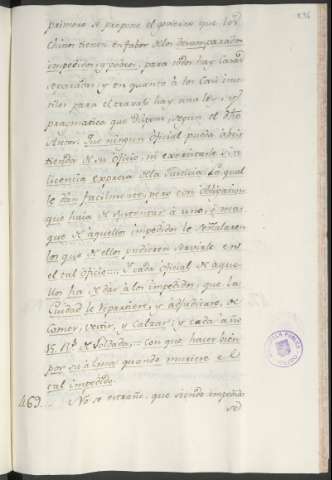 primero se propone el govierno que los
Chinos tienen en fabor de los desamparados
impedidos, y pobres, para estos hay casas
separadas, y en quanto à los
para el travajo hay una ley, y
pragmatica que dicen segun el dho
Autor. Que ningun oficial pueda abrir
tienda de su oficio, ni exercitarle sin
licencia expresa de la Justicia la qual
le dan facilmente, pero con obligacion
que haia de sustentar à uno, ò mas
que de aquellos impedidos le señalaren
los que de ellos pudieren servirle en
el tal oficio... Y cada oficial de aque
llos ha de dar à los impedidos, que la
Ciudad le repartiere, y adjudicare, de
Comer, vestir, y Calzar, y cada año
15 Rs. de Soldada,... con que hacer bien
por su alma quando muriere el
tal impedido.
469... No se estrañe, que siendo impedido